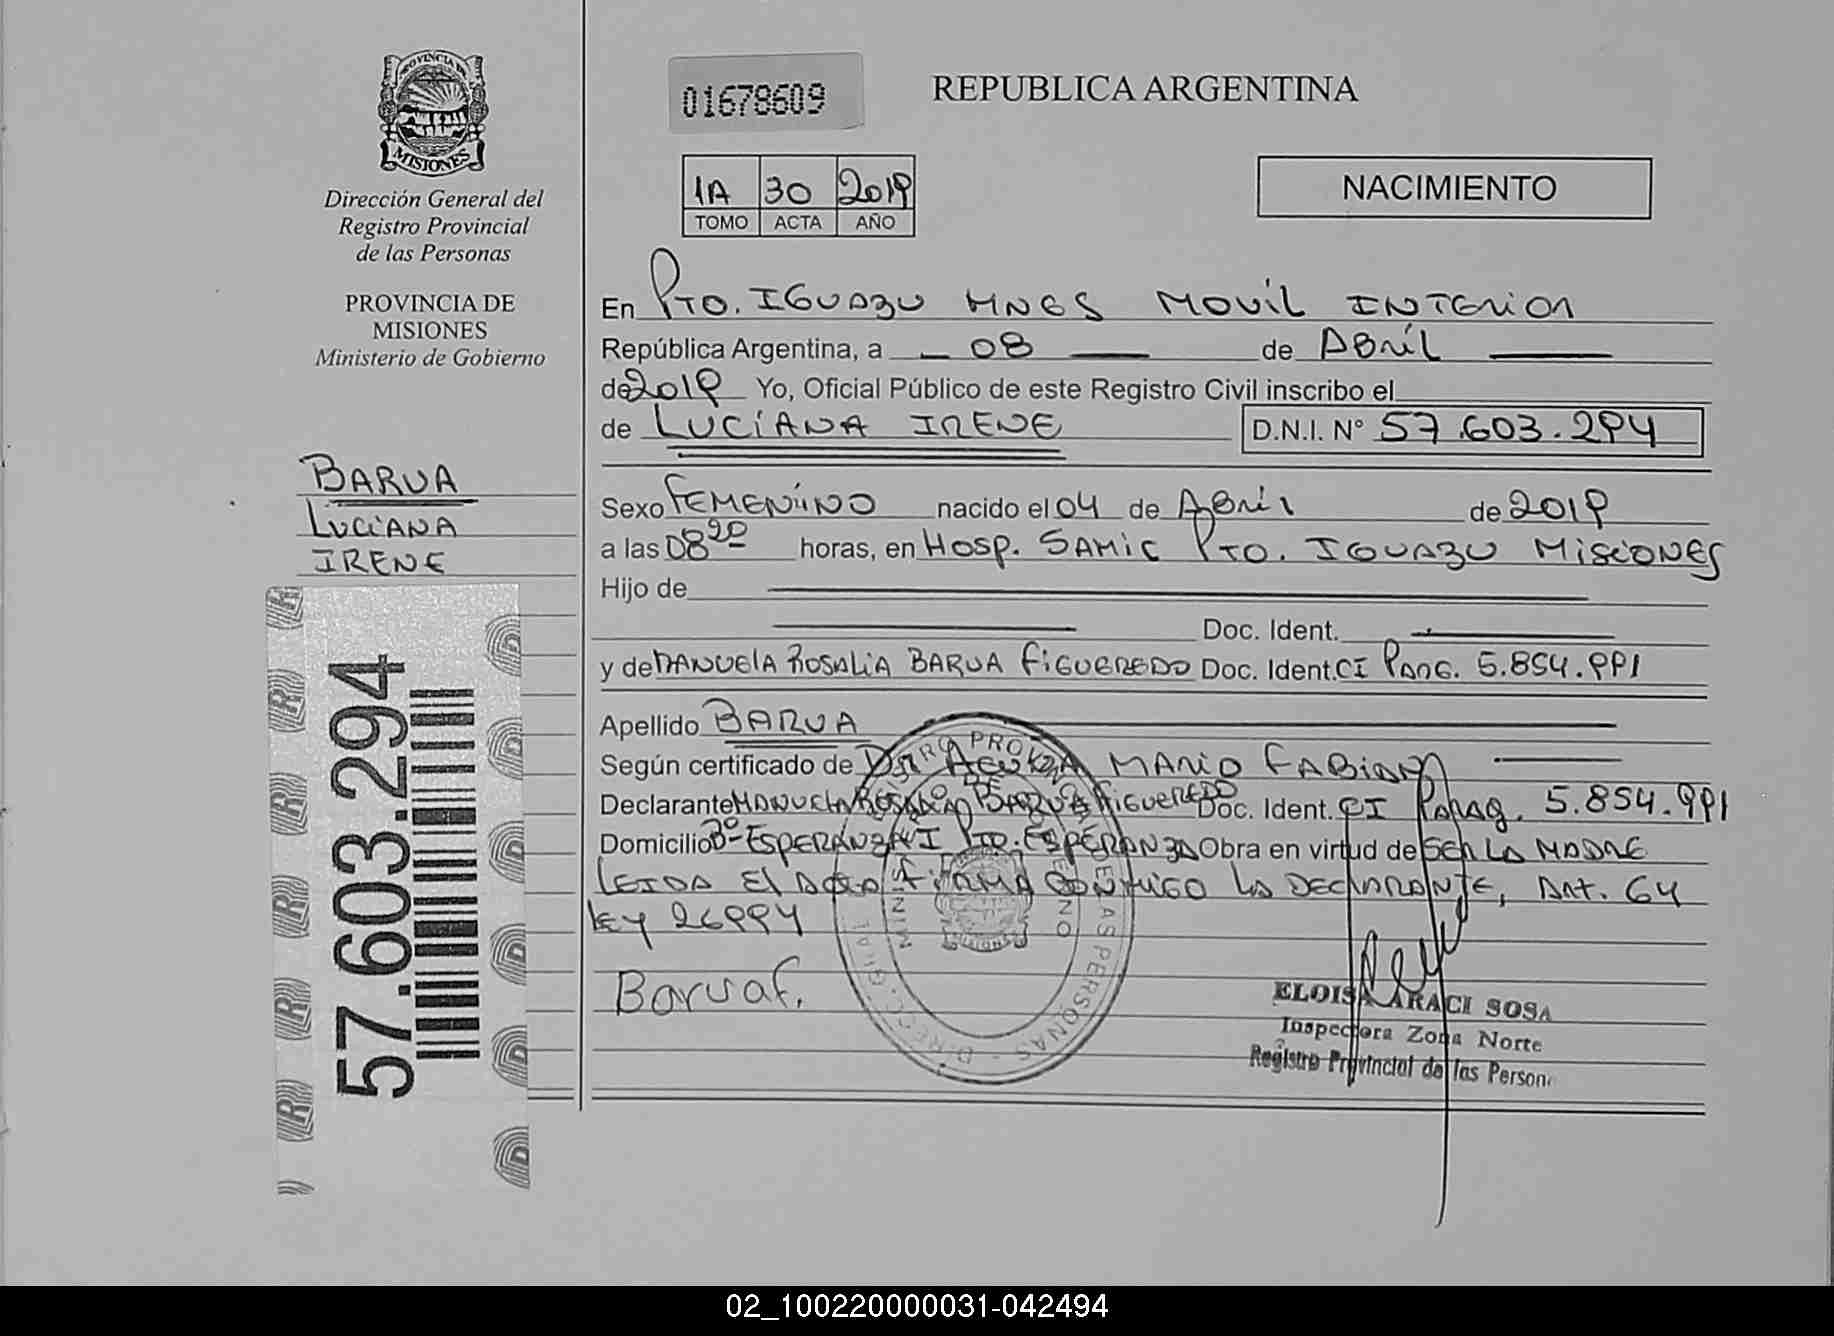 PROVINCIA DE
MISIONES
Dirección General del
Registro Provincial
de las Personas
PROVINCIA DE
MISIONES
Ministerio de Gobierno
BARUA
LUCIANA
IRENE
57.603.294
01678609
REPUBLICA ARGENTINA
1A 30 2019
TOMO ACTA AÑO
NACIMIENTO
En Pto. IGUAZU MNES MOVIL INTERIOR
República Argentina, a 08 de ABRIL
de 2019 Yo, Oficial Público de este Registro Civil inscribo el
de LUCIANA IRENE D.N.I. N° 57.603.294
Sexo FEMENINO nacido el 04 de ABRIL de 2019
a las 08 20 horas, en HOSP. SAMIC PTO. IGUAZU MISIONES
Hijo de
Doc. Ident.
y de MANUELA ROSALIA BARUA FIGUEREDO Doc. Ident. CI PARG. 5.854.991
Apellido BARUA
Según certificado de DR ACUÑA MARIO FABIAN
Declarante MANUELA ROSALIA BARUA FIGUEREDO Doc. Ident. CI PARAG. 5.854.991
Domicilio Bº ESPERANZA I PTO. ESPERANZA Obra en virtud de SER LA MADRE
LEIDA EL ACTA FIRMA CONMIGO LA DECLARANTE, ART. 64
LEY 26994
Barua f.
ELOISA ARACI SOSA
Inspectora Zona Norte
Registro Provincial de las Person
02_100220000031-042494